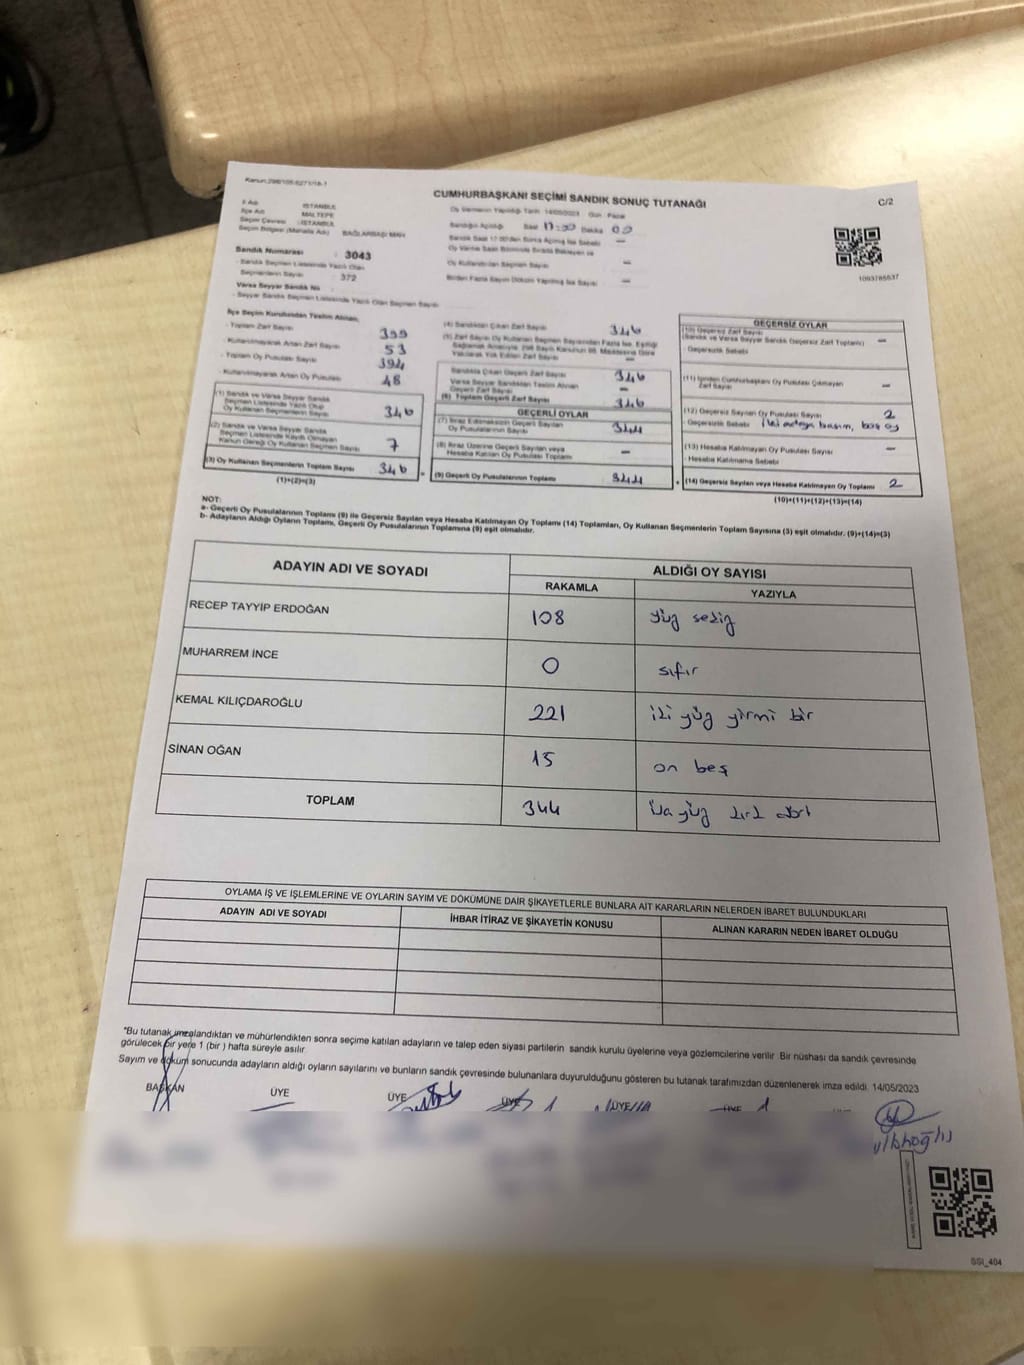 Kanun:298/105-6271/18-1
CUMHURBAŞKANI SEÇİMİ SANDIK SONUÇ TUTANAĞI
C/2
İl Adı : İSTANBUL
İlçe Adı : MALTEPE
Seçim Çevresi : İSTANBUL
Seçim Bölgesi (Mahalle Adı) : BAĞLARBAŞI MAH.
Oy Vermenin Yapıldığı Tarih 14/05/2023 Gün : Pazar
Sandığın Açıldığı Saat 17:00 Dakika 00
Sandık Saat 17:00'den Sonra Açılmış İse Sebebi —
Oy Verme Saati Bitiminde Sırada Bekleyen ve
Oy Kullandırılan Seçmen Sayısı —
Birden Fazla Sayım Döküm Yapılmış İse Sayısı —
1093785537
Sandık Numarası : 3043
- Sandık Seçmen Listesinde Yazılı Olan
Seçmenlerin Sayısı : 372
Varsa Seyyar Sandık No :
- Seyyar Sandık Seçmen Listesinde Yazılı Olan Seçmen Sayısı
İlçe Seçim Kurulundan Teslim Alınan;
- Toplam Zarf Sayısı 399
- Kullanılmayarak Artan Zarf Sayısı 53
- Toplam Oy Pusulası Sayısı 394
- Kullanılmayarak Artan Oy Pusulası 48
(1) Sandık ve Varsa Seyyar Sandık
Seçmen Listesinde Yazılı Olup
Oy Kullanan Seçmenlerin Sayısı 346
(2) Sandık ve Varsa Seyyar Sandık
Seçmen Listesinde Kayıtlı Olmayan
Kanun Gereği Oy Kullanan Seçmen Sayısı 7
(3) Oy Kullanan Seçmenlerin Toplam Sayısı 346
(1)+(2)=(3)
(4) Sandıktan Çıkan Zarf Sayısı 346
(5) Zarf Sayısı Oy Kullanan Seçmen Sayısından Fazla İse, Eşitliği
Sağlamak Amacıyla, 298 Sayılı Kanunun 98. Maddesine Göre
Yakılarak Yok Edilen Zarf Sayısı —
Sandıkta Çıkan Geçerli Zarf Sayısı 346
Varsa Seyyar Sandıktan Teslim Alınan
Geçerli Zarf Sayısı —
(6) Toplam Geçerli Zarf Sayısı 346
GEÇERLİ OYLAR
(7) İtiraz Edilmeksizin Geçerli Sayılan
Oy Pusulalarının Sayısı 344
(8) İtiraz Üzerine Geçerli Sayılan veya
Hesaba Katılan Oy Pusulası Toplamı —
(9) Geçerli Oy Pusulalarının Toplamı 344
GEÇERSİZ OYLAR
(10) Geçersiz Zarf Sayısı
(Sandık ve Varsa Seyyar Sandık Geçersiz Zarf Toplamı) —
- Geçersizlik Sebebi
(11) İçinden Cumhurbaşkanı Oy Pusulası Çıkmayan
Zarf Sayısı —
(12) Geçersiz Sayılan Oy Pusulası Sayısı 2
- Geçersizlik Sebebi iki adaya basım, boş oy
(13) Hesaba Katılmayan Oy Pusulası Sayısı —
- Hesaba Katılmama Sebebi
(14) Geçersiz Sayılan veya Hesaba Katılmayan Oy Toplamı 2
(10)+(11)+(12)+(13)=(14)
NOT:
a- Geçerli Oy Pusulalarının Toplamı (9) ile Geçersiz Sayılan veya Hesaba Katılmayan Oy Toplamı (14) Toplamları, Oy Kullanan Seçmenlerin Toplam Sayısına (3) eşit olmalıdır. (9)+(14)=(3)
b- Adayların Aldığı Oyların Toplamı, Geçerli Oy Pusulalarının Toplamına (9) eşit olmalıdır.
ADAYIN ADI VE SOYADI
ALDIĞI OY SAYISI
RAKAMLA YAZIYLA
RECEP TAYYİP ERDOĞAN 108 yüz sekiz
MUHARREM İNCE 0 sıfır
KEMAL KILIÇDAROĞLU 221 iki yüz yirmi bir
SİNAN OĞAN 15 on beş
TOPLAM 344 üç yüz kırk dört
OYLAMA İŞ VE İŞLEMLERİNE VE OYLARIN SAYIM VE DÖKÜMÜNE DAİR ŞİKAYETLERLE BUNLARA AİT KARARLARIN NELERDEN İBARET BULUNDUKLARI
ADAYIN ADI VE SOYADI İHBAR İTİRAZ VE ŞİKAYETİN KONUSU ALINAN KARARIN NEDEN İBARET OLDUĞU
*Bu tutanak imzalandıktan ve mühürlendikten sonra seçime katılan adayların ve talep eden siyasi partilerin sandık kurulu üyelerine veya gözlemcilerine verilir. Bir nüshası da sandık çevresinde
görülecek bir yere 1 (bir ) hafta süreyle asılır.
Sayım ve döküm sonucunda adayların aldığı oyların sayılarını ve bunların sandık çevresinde bulunanlara duyurulduğunu gösteren bu tutanak tarafımızdan düzenlenerek imza edildi. 14/05/2023
BAŞKAN ÜYE ÜYE ÜYE ÜYE ÜYE
SSI_404